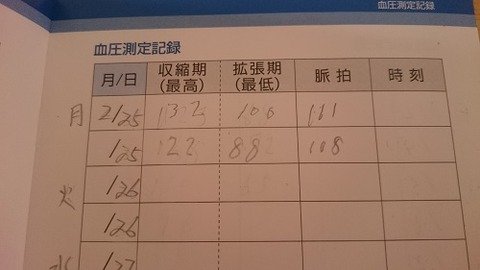 血圧測定記録
血圧測定記録
月/日 収縮期(最高) 拡張期(最低) 脈拍 時刻
月 2/25 132 100 111
1/25 122 88 108
火 1/26
1/26
水 1/27